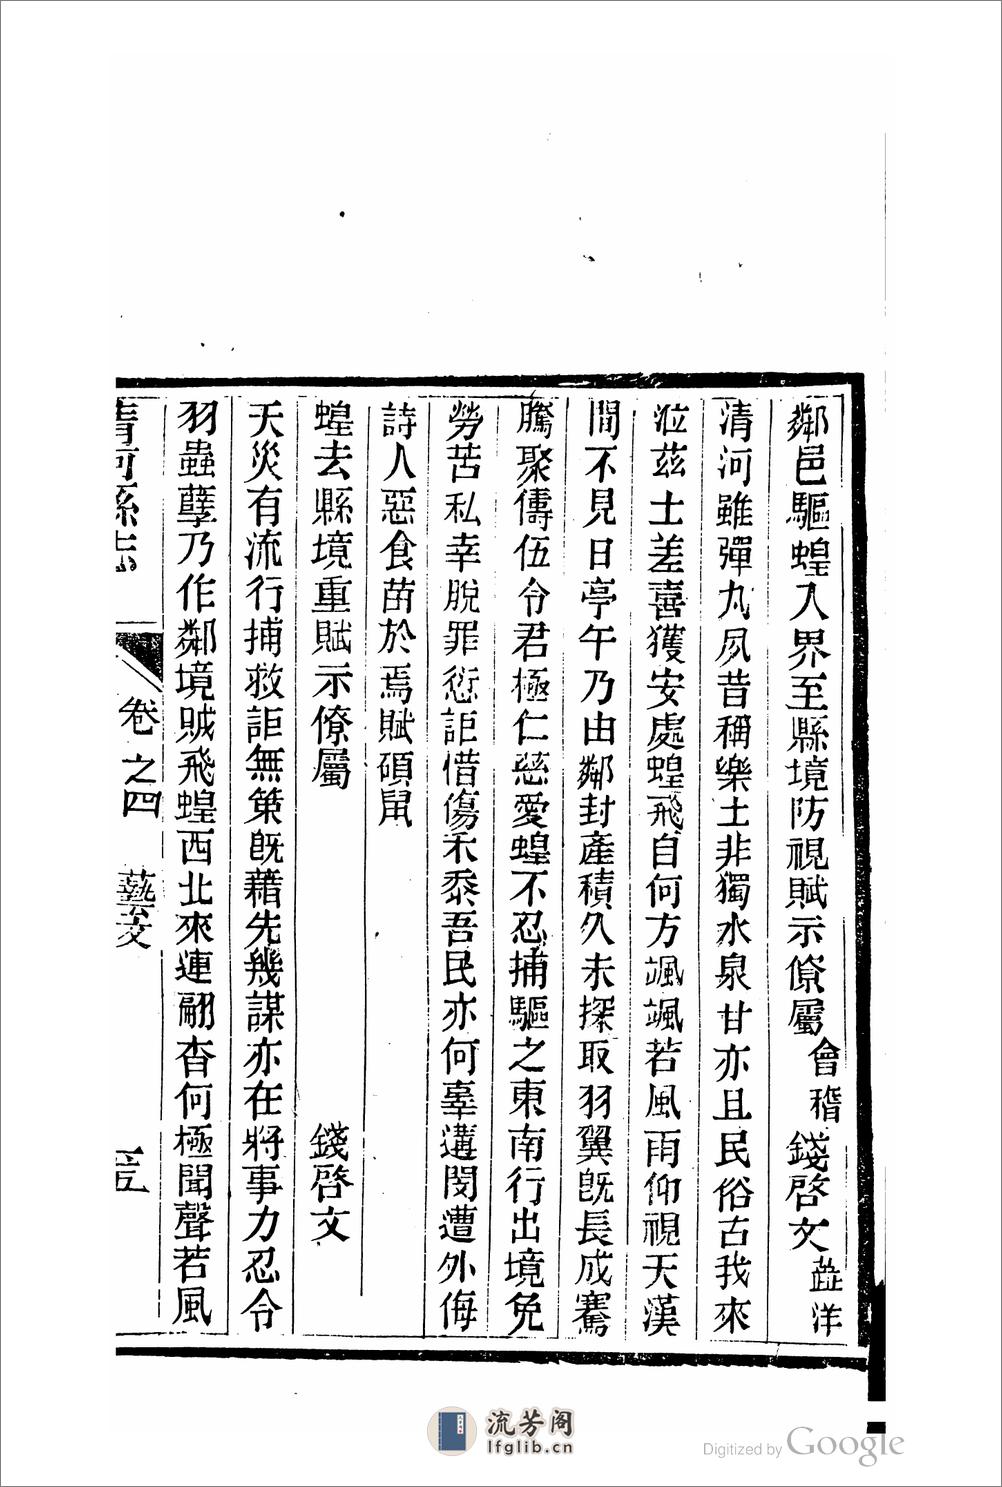 鄰邑驅蝗入界至縣境防視賦示僚屬會稽錢啓文蓝洋
清河雖彈丸夙昔稱樂土非獨水泉甘亦且民俗古我來
涖茲土差喜獲安處蝗飛自何方颯颯若風雨仰視天漢
間不見日亭午乃由鄰封產積久未探取羽翼旣長成騫
騰聚儔伍令君極仁慈愛蝗不忍捕驅之東南行出境免
勞苦私幸脫罪愆詎惜傷禾黍吾民亦何辜遘閔遭外侮
詩人惡食苗於焉賦碩鼠
蝗去縣境重賦示僚屬 錢啓文
天災有流行捕救詎無策旣藉先幾謀亦在將事力忍令
羽蟲孽乃作鄰境賊飛蝗西北來連翩杳何極聞聲若風
清河縣志 卷之四 藝文 三五
流芳阁
lfglib.cn
Digitized by Google